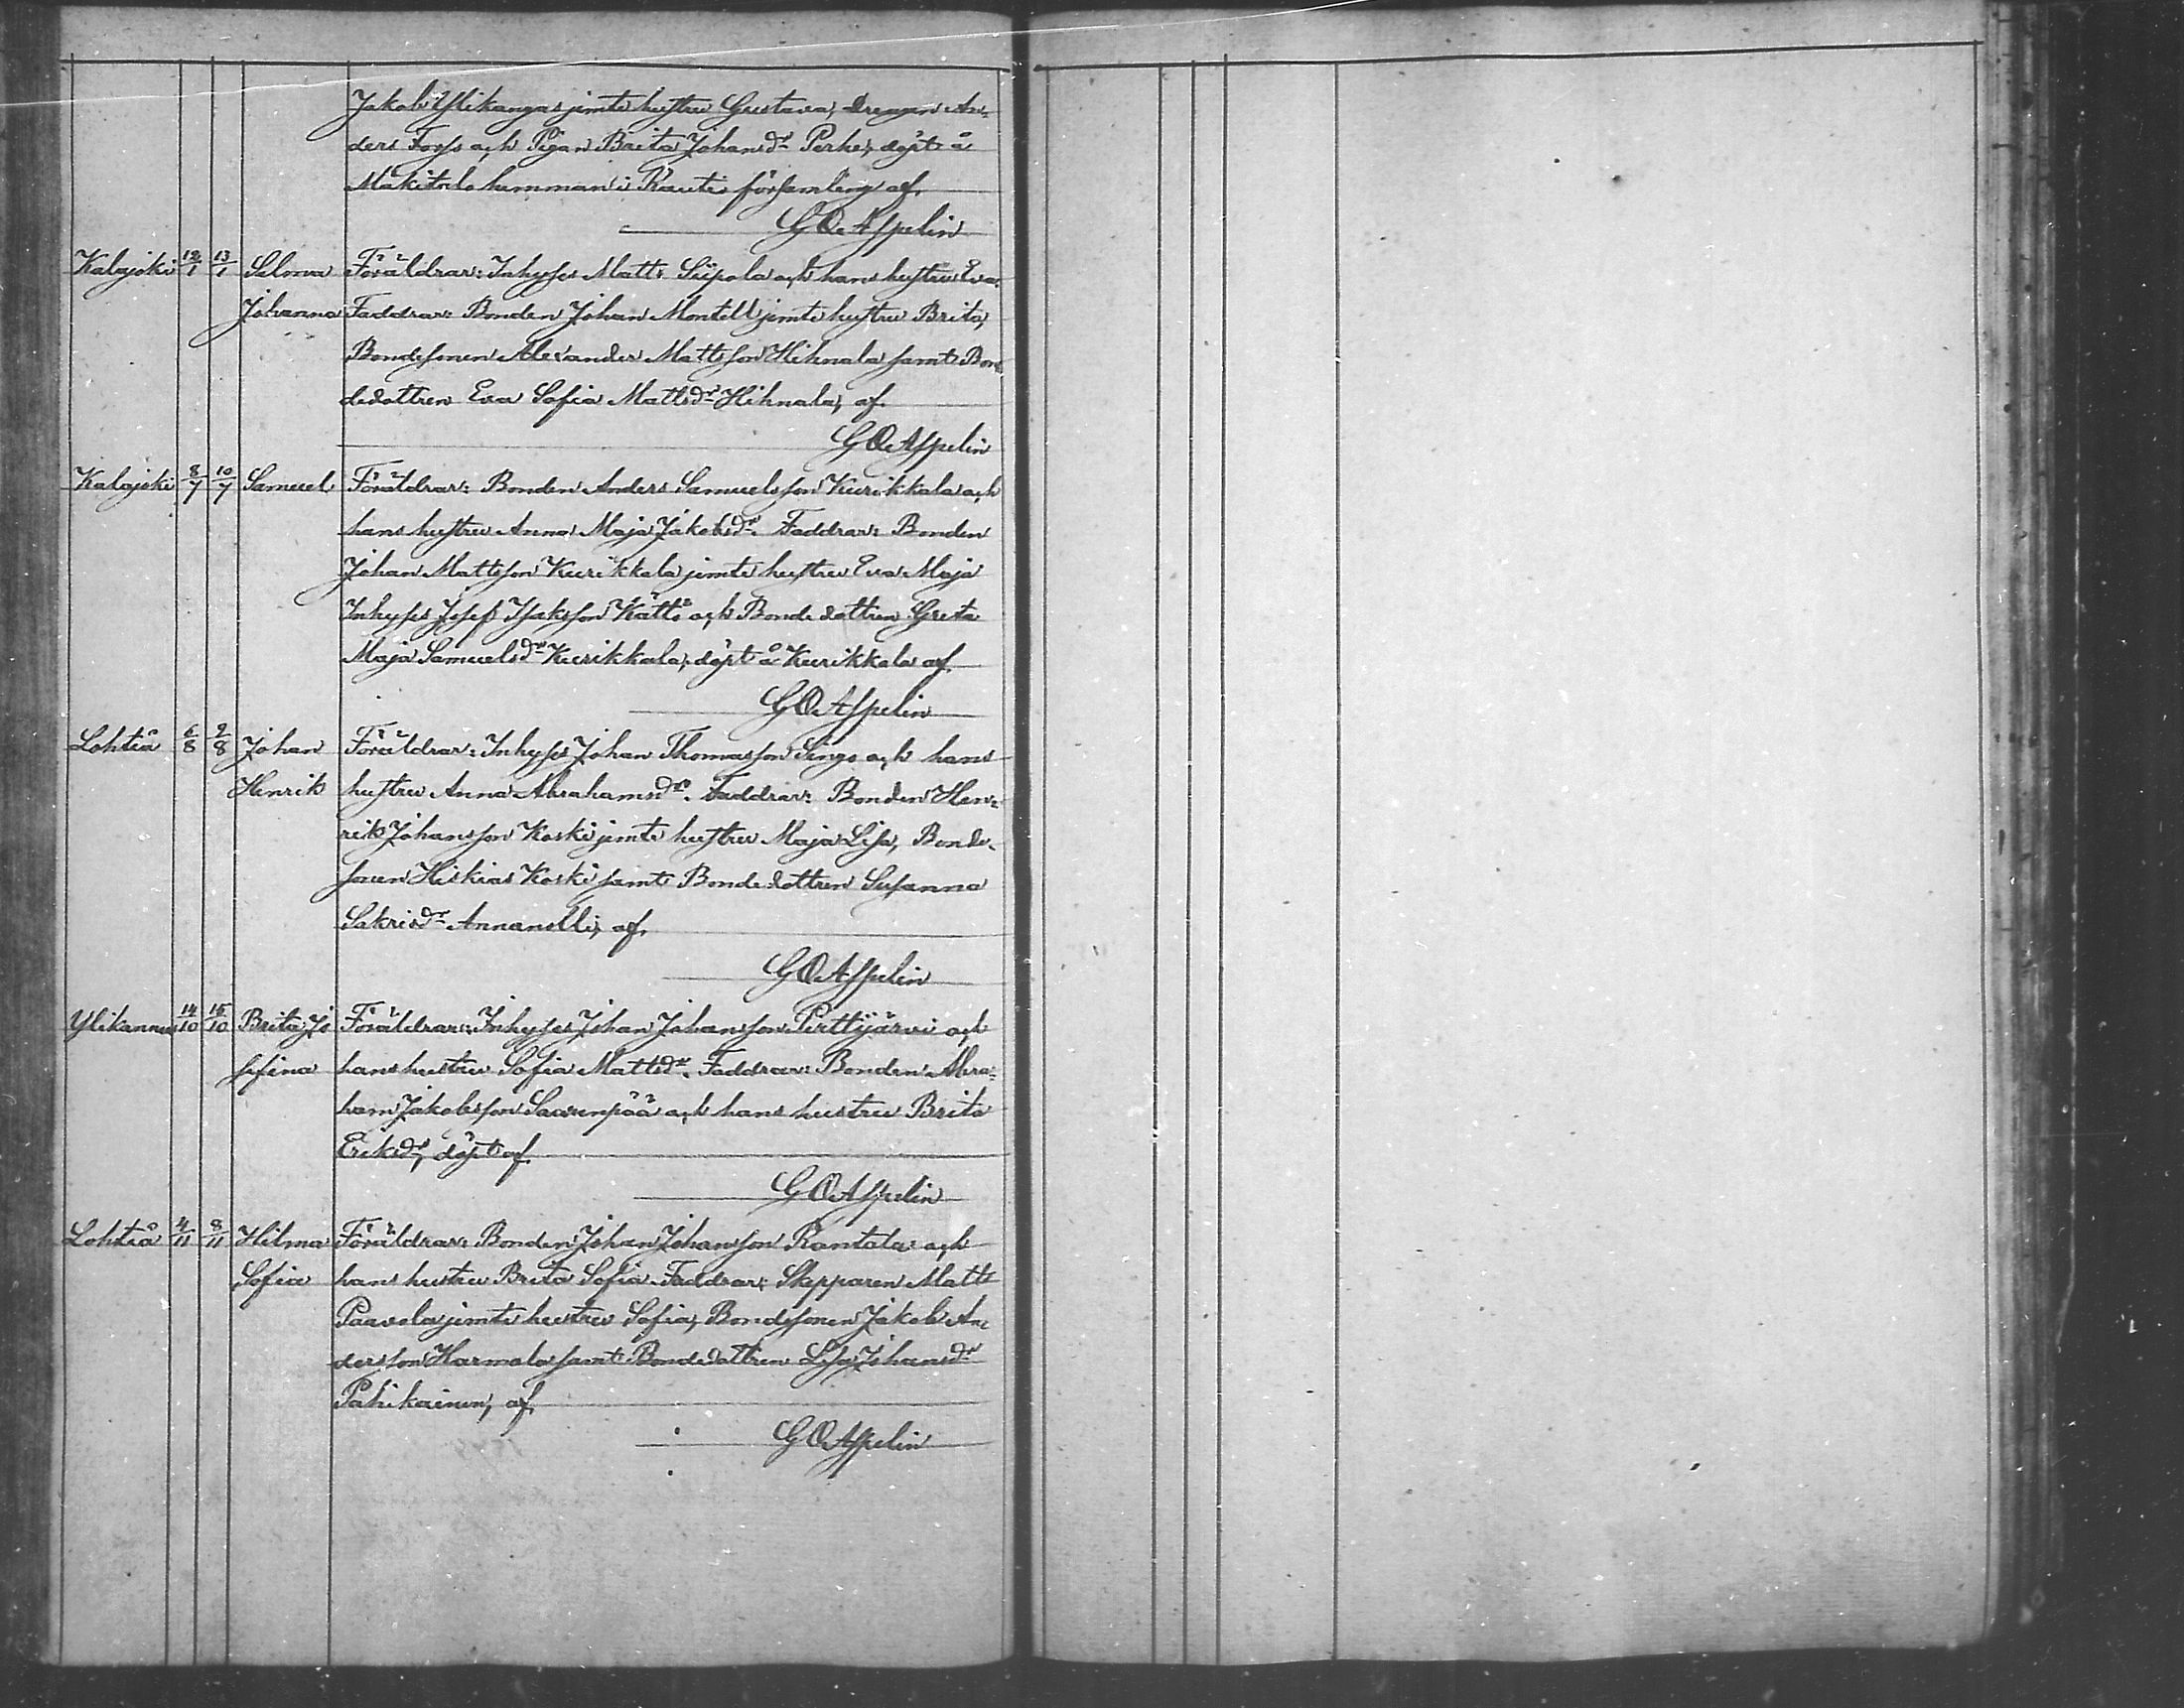 Jakob Ylikangas jemte hustru Gustava, Drengen An-
ders Forss och Pigan Brita Johansdr Perhe, döpt å
Mäkitalo hemman i Rautio församling af.
G O Aspelin
Kalajoki 12/1 13/1 Selma Föräldrar: Inhyses Matts Siipola och hans hustru Eva.
Johanna Faddrar: Bonden Johan Montell jemte hustru Brita,
Bondesonen Alexander Mattsson Hihnala samt Bon-
dedottren Eva Sofia Mattsdr Hihnala, af.
G O Aspelin
Kalajoki 8/7 10/7 Samuel Föräldrar: Bonden Anders Samuelsson Kurikkala och
hans hustru Anna Maja Jakobsdr. Faddrar: Bonden
Johan Mattsson Kurikkala jemte hustru Eva Maja
Inhyses Josef Isaksson Kättö och Bondedottren Greta
Maja Samuelsdr Kurikkala, döpt å Kurikkala af.
G O Aspelin
Lohteå 6/8 9/8 Johan Föräldrar: Inhyses Johan Thomasson Singo och hans
Henrik hustru Anna Abrahamsdr. Faddrar: Bonden Hen-
rik Johansson Koski jemte hustru Maja Lisa, Bonde-
sonen Hiskias Koski samt Bondedottren Susanna
Sakrisdr Annanolli, af.
G O Aspelin
Ylikannus 14/10 15/10 Brita Jo Föräldrar: Inhyses Johan Johansson Perttijärvi och
sefina hans hustru Sofia Mattsdr. Faddrar: Bonden Abra-
ham Jakobsson Saarenpää och hans hustru Brita
Eriksdr, döpt af.
G O Aspelin
Lohteå 4/11 8/11 Hilma Föräldrar: Bonden Johan Johansson Rantala och
Sofia hans hustru Brita Sofia. Faddrar: Skepparen Matts
Paavola jemte hustru Sofia, Bondesonen Jakob An-
dersson Harmala samt Bondedottren Lisa Johansdr
Pahikainen, af.
G O Aspelin